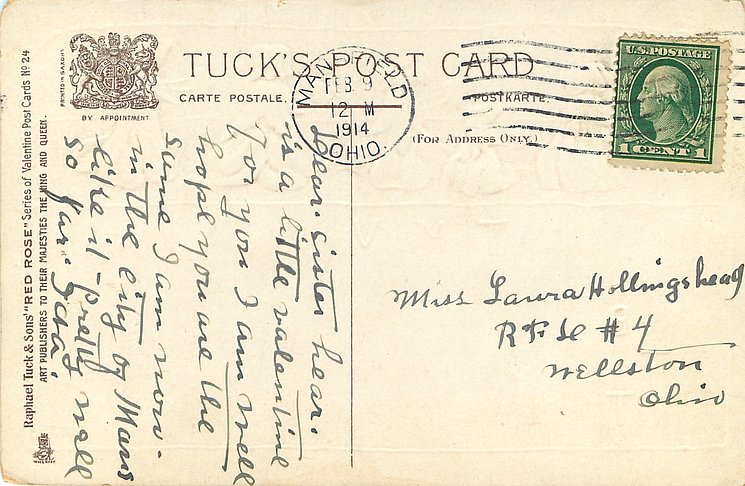 TUCK'S POST CARD
CARTE POSTALE.
POSTKARTE.
(FOR ADDRESS ONLY.)
PRINTED IN SAXONY
BY APPOINTMENT
Raphael Tuck & Sons' "RED ROSE" Series of Valentine Post Cards No 24
ART PUBLISHERS TO THEIR MAJESTIES THE KING AND QUEEN.
MANSFIELD
FEB 9
12 M
1914
OHIO.
U.S. POSTAGE
1 CENT 1
Dear sister hear.
is a little valentine
for you I am well
hope you are the
same I am now
in the city of Mans
like it pretty well
so far.
Miss Laura Hollingshead
R F D #4
Wellston
Ohio